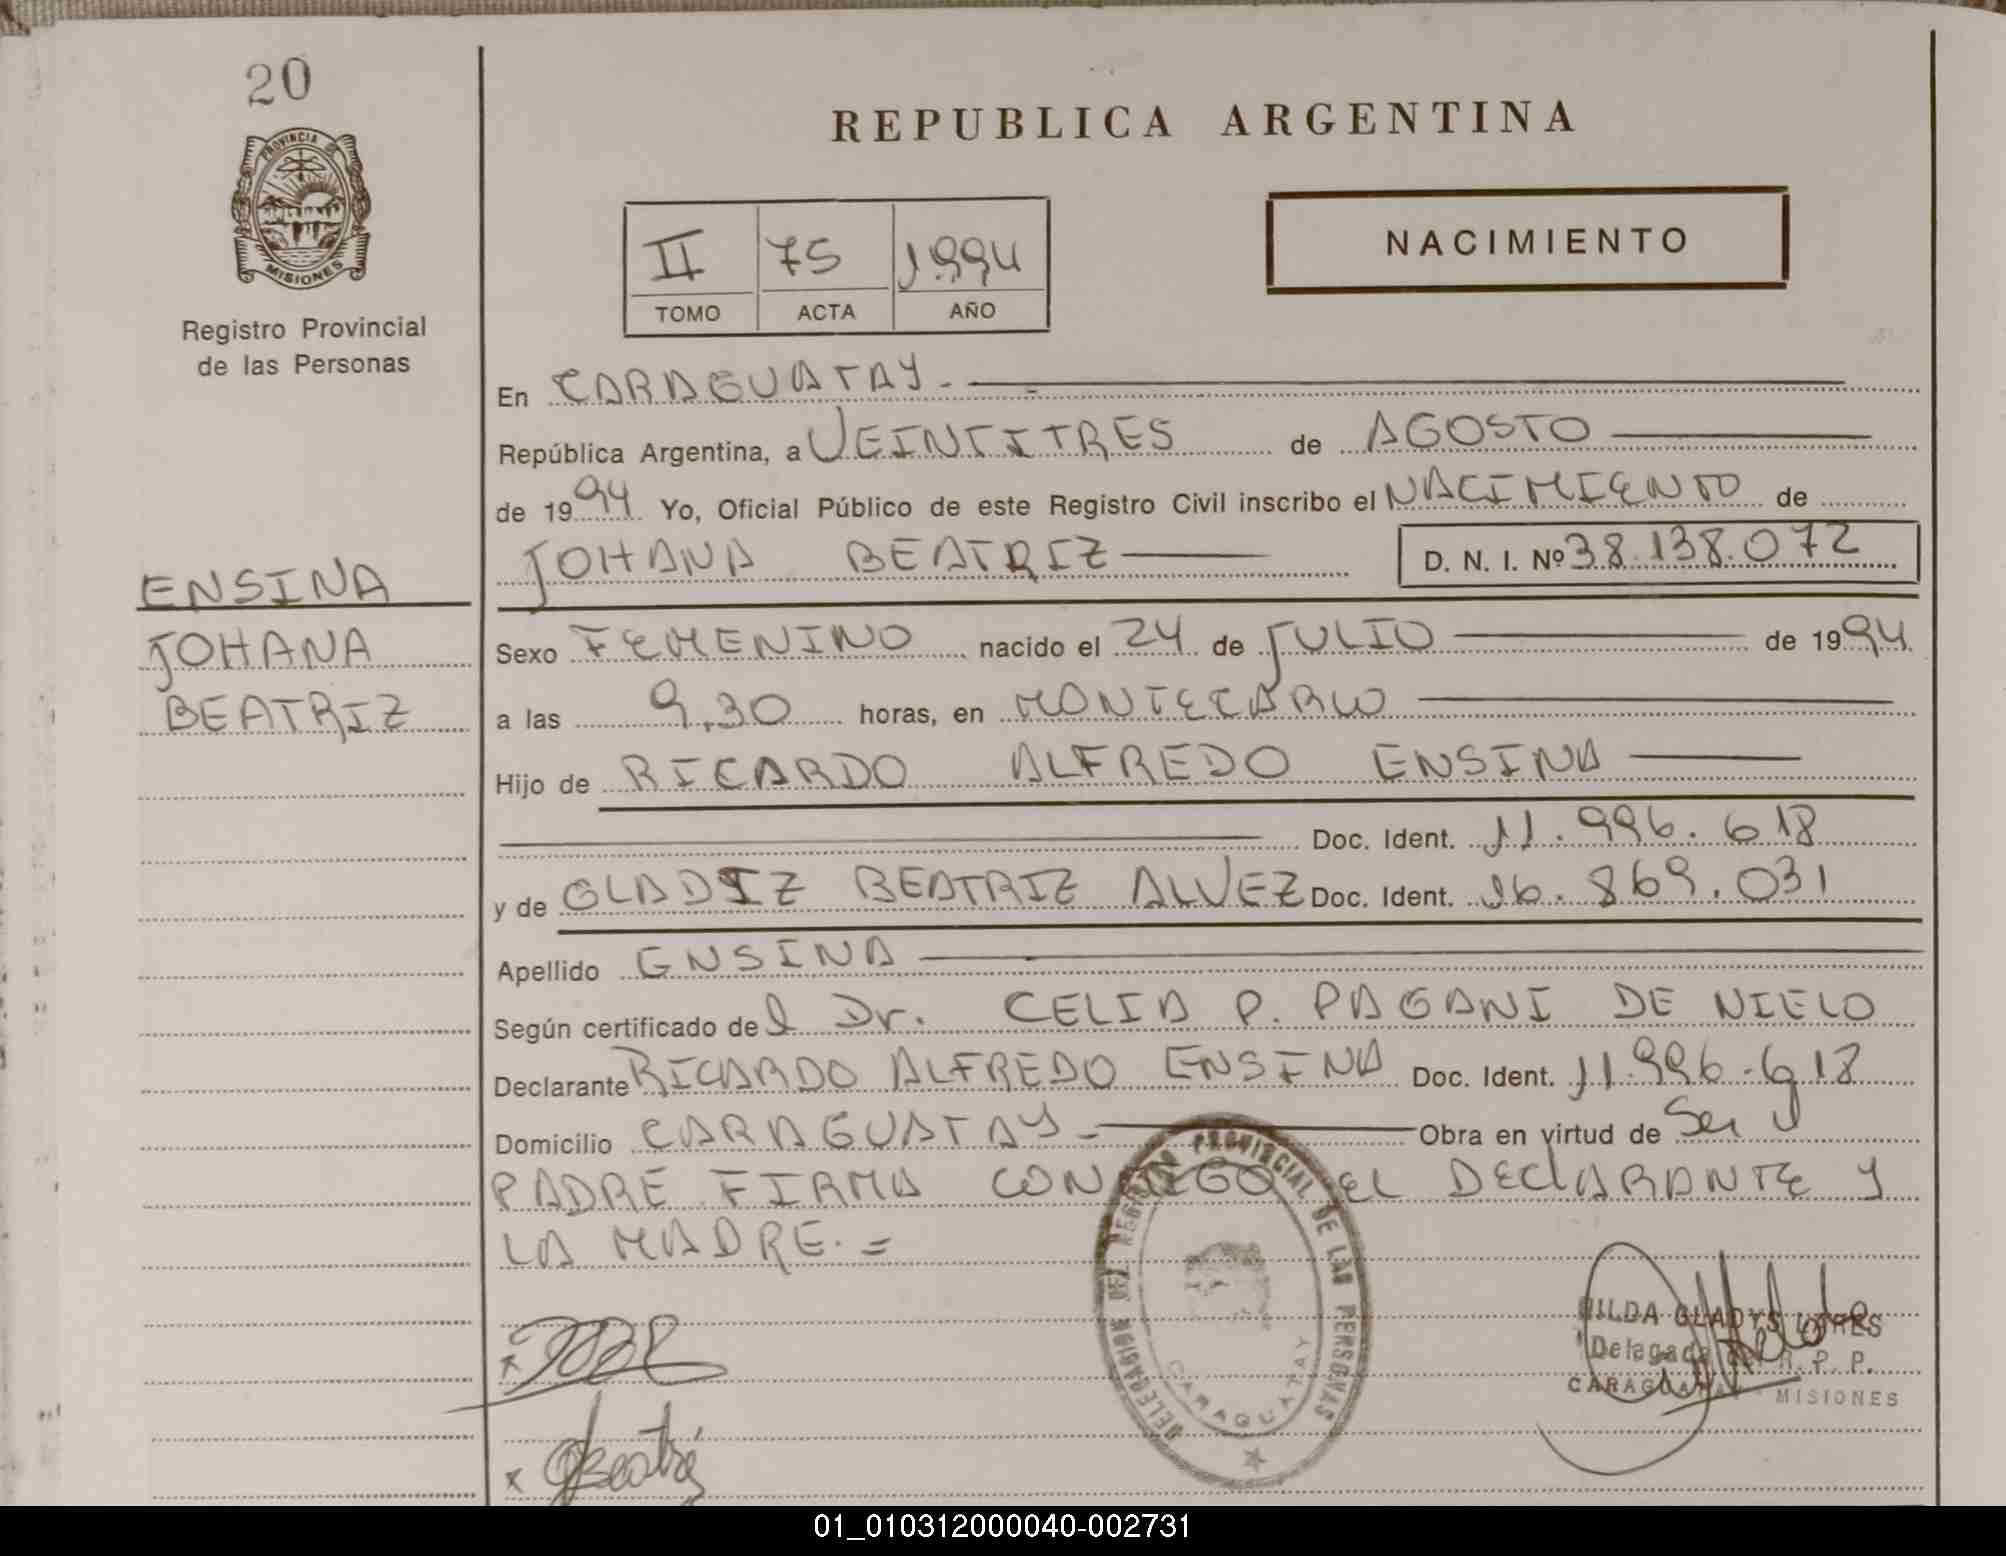 20
PROVINCIA DE
MISIONES
Registro Provincial
de las Personas
REPUBLICA ARGENTINA
II 75 1994
TOMO ACTA AÑO
NACIMIENTO
En CARAGUATAY.-
República Argentina, a VEINTITRES de AGOSTO
de 1994 Yo, Oficial Público de este Registro Civil inscribo el NACIMIENTO de
JOHANA BEATRIZ D. N. I. Nº 38.138.072
ENSINA
JOHANA
BEATRIZ
Sexo FEMENINO nacido el 24 de JULIO de 1994.
a las 9,30 horas, en MONTECARLO
Hijo de RICARDO ALFREDO ENSINA
Doc. Ident. 11.996.618
y de GLADIZ BEATRIZ ALVEZ Doc. Ident. 16.869.031
Apellido ENSINA
Según certificado del Dr. CELIA P. PAGANI DE NIELO
Declarante RICARDO ALFREDO ENSINA Doc. Ident. 11.996.618
Domicilio CARAGUATAY- Obra en virtud de Ser
PADRE FIRMA CONMIGO EL DECLARANTE Y
LA MADRE.=
DELEGACION DEL REGISTRO PROVINCIAL DE LAS PERSONAS
CARAGUATAY
HILDA GLADYS
Delegada R. P. P.
CARAGUATAY - MISIONES
x
x Beatriz
01_010312000040-002731